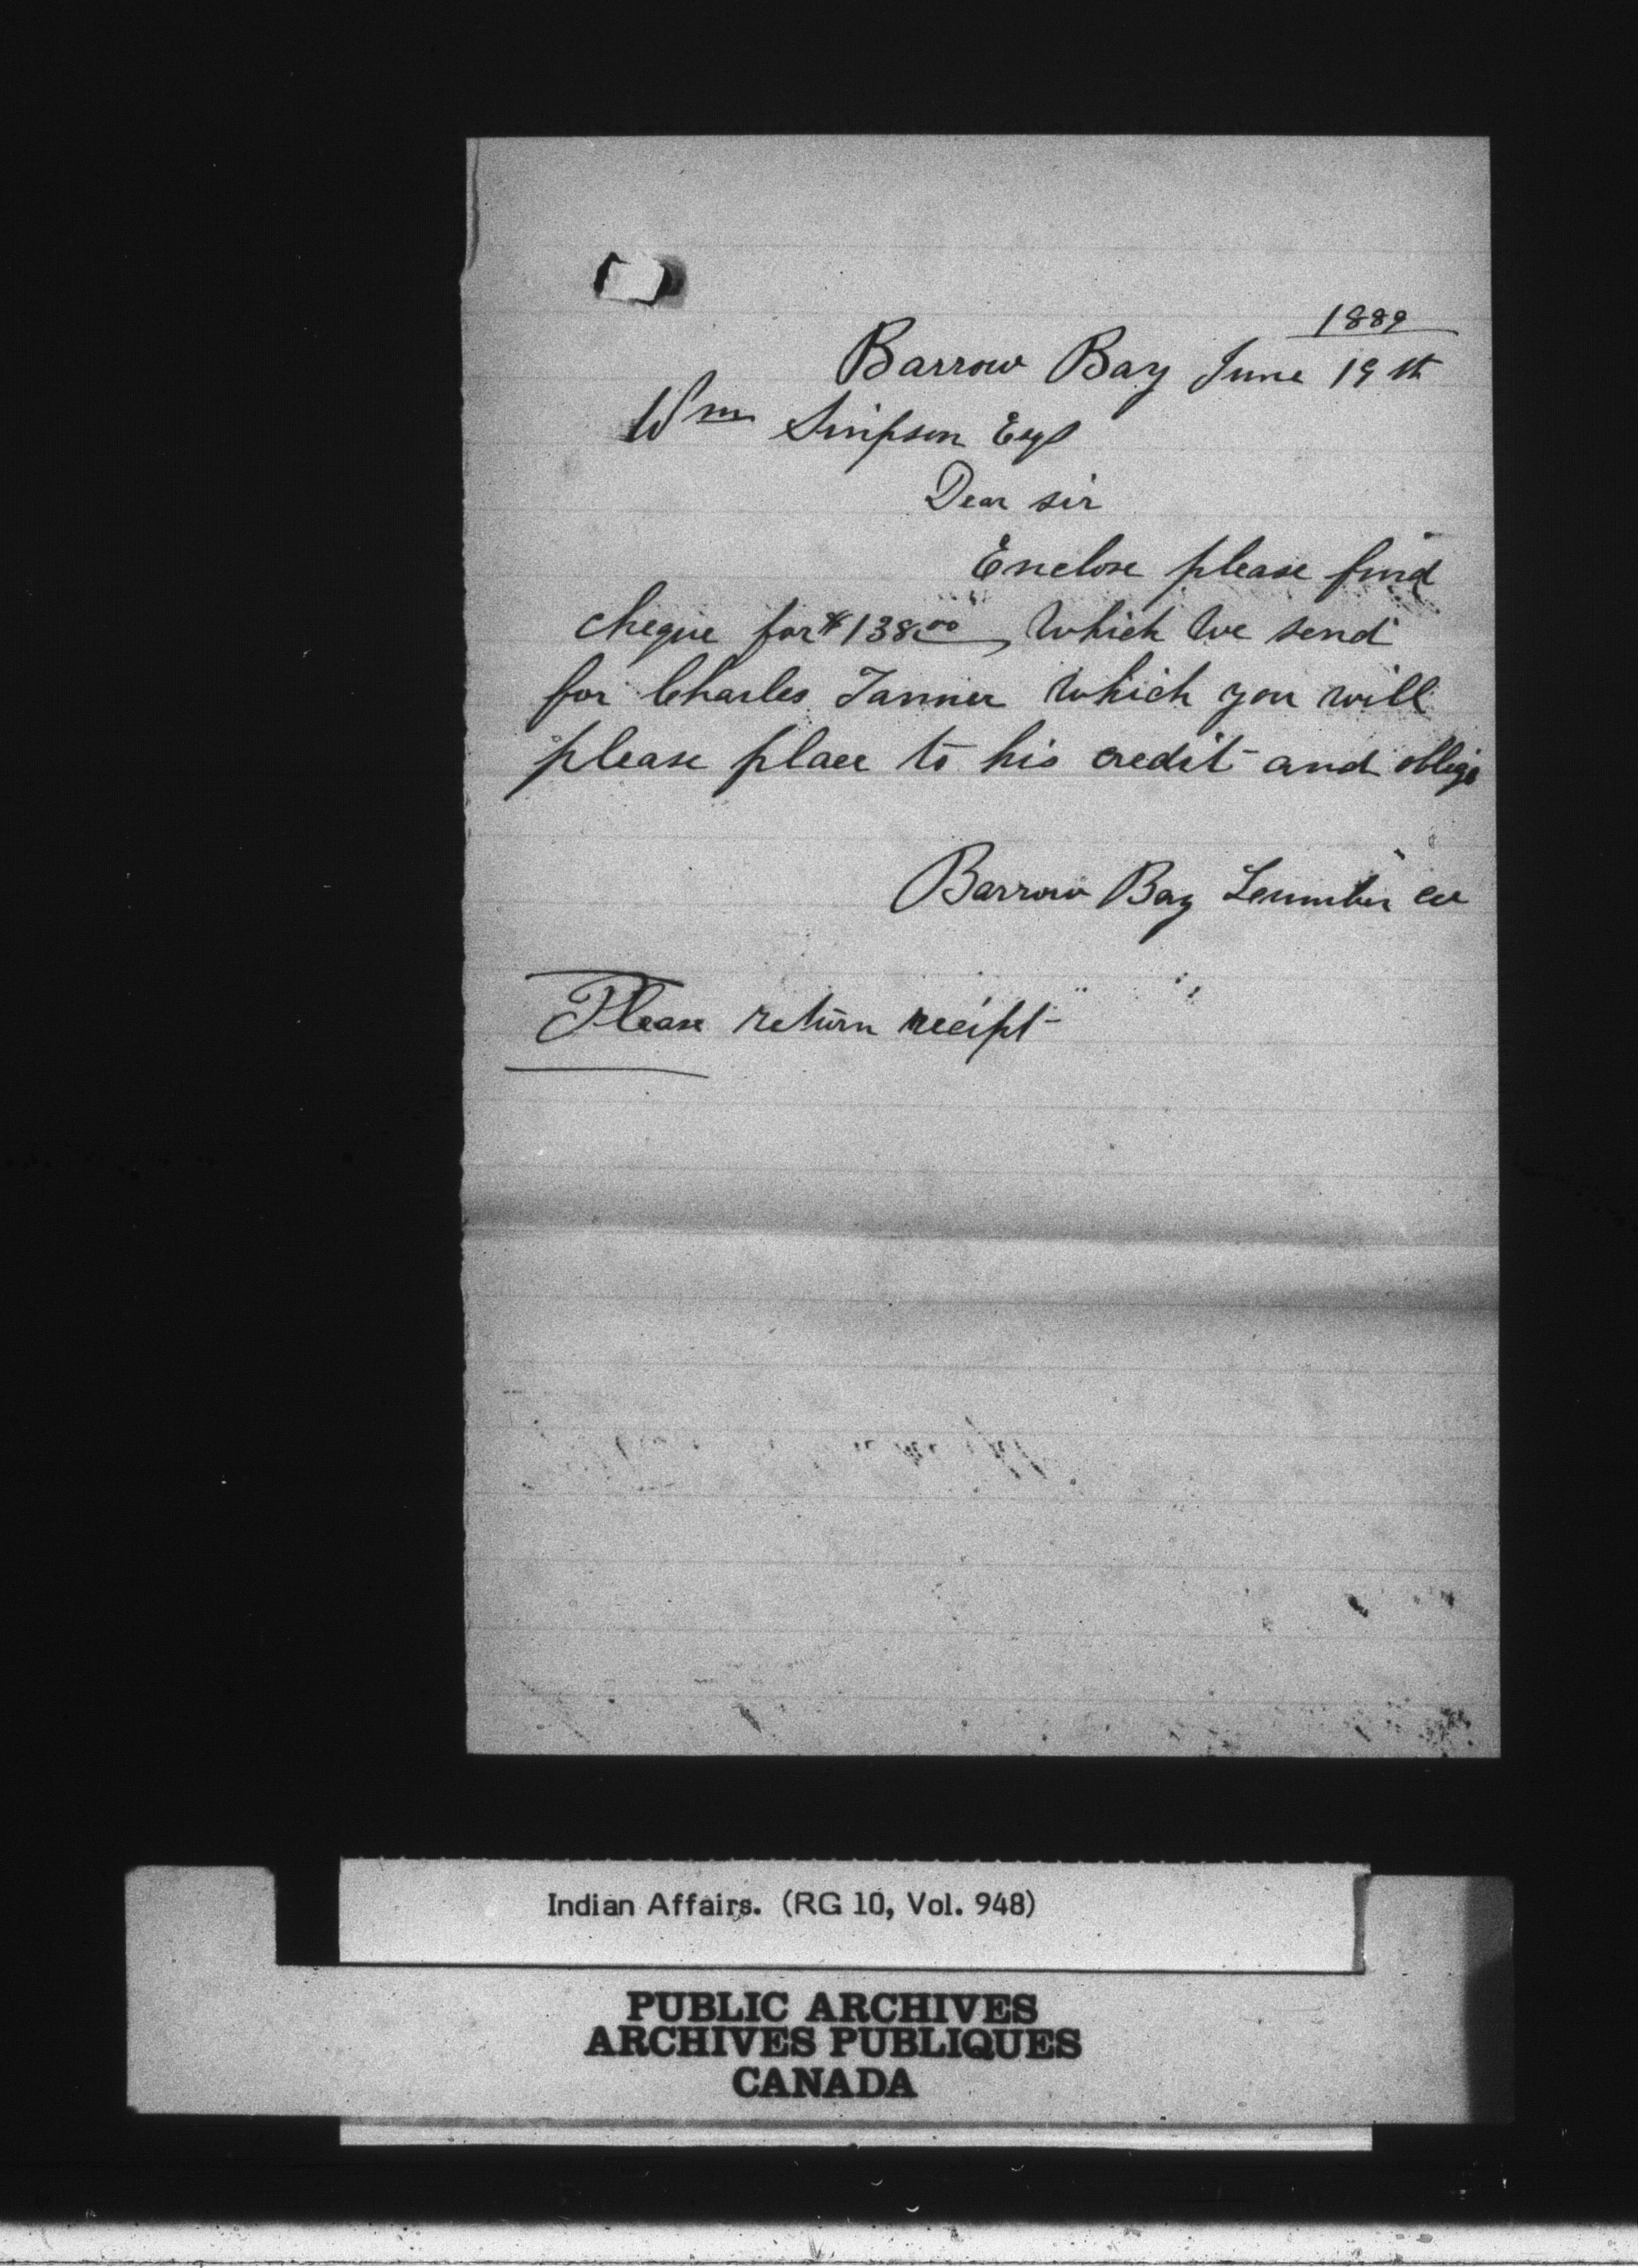 1889
Barrow Bay June 19th
Wm Simpson Esq
Dear sir
Enclose please find
cheque for $138.00 which we send
for Charles Tanner which you will
please place to his credit and oblige
Barrow Bay Lumber co
Please return receipt
Indian Affairs. (RG 10, Vol. 948)
PUBLIC ARCHIVES
ARCHIVES PUBLIQUES
CANADA